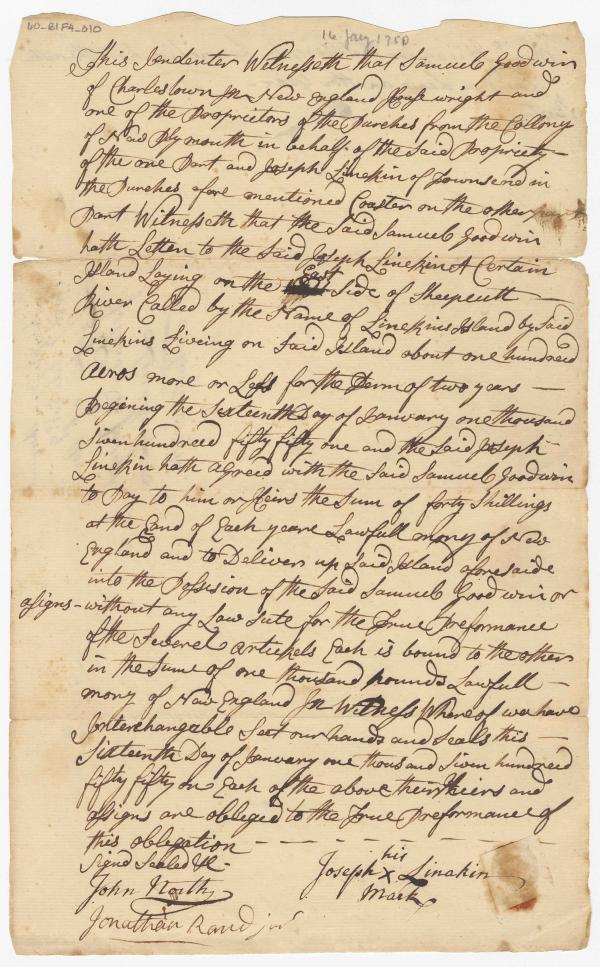 60_B1F4_010
16 Jany 1750
This Indenter Witnesseth that Samuel Goodwin
of Charlestown In New England House wright and
one of the Proprietors of the Purches from the Collony
of New Plymouth in behalf of the Said Propriety —
of the one Part and Joseph Linekin of Townsend in
the Purches afore mentioned Coaster on the other part
Part Witnesseth that the Said Samuel Goodwin
hath Letten to the Said Joseph Linekin A Certain
Island Laying on the East Side of Sheepcutt —
River Called by the Name of Linekins Island by Said
Linekins Liveing on Said Island about one hundreed
Acros more or Less for the Term of two years —
Begening the Sixteenth Day of January one thousand
Siven hundreed fifty fifty one and the Said Joseph
Linekin hath Agreed with the Said Samuel Goodwin
to Pay to him or Heirs the Sum of forty Shillings
at the End of Each yeare Lawfull mony of New
England and to Deliver up Said Island aforesaide
into the Possision of the Said Samuel Goodwin or
assigns - without any Law Sute for the True Preformance
of the Severel Artickels Each is bound to the other
in the Sume of one thousand pounds Lawfull —
mony of New England In Witness Whereof we have
Interchangable Seet our hands and Seals this —
Sixteenth Day of January one thousand Siven hundreed
fifty fifty on Each of the above their Heirs and
assigns are obleged to the True Preformance of
this oblegation — — — — — —
Signd Sealed &c -
his
Joseph X Linakin
Mark
John North
Jonathan Rand jnr